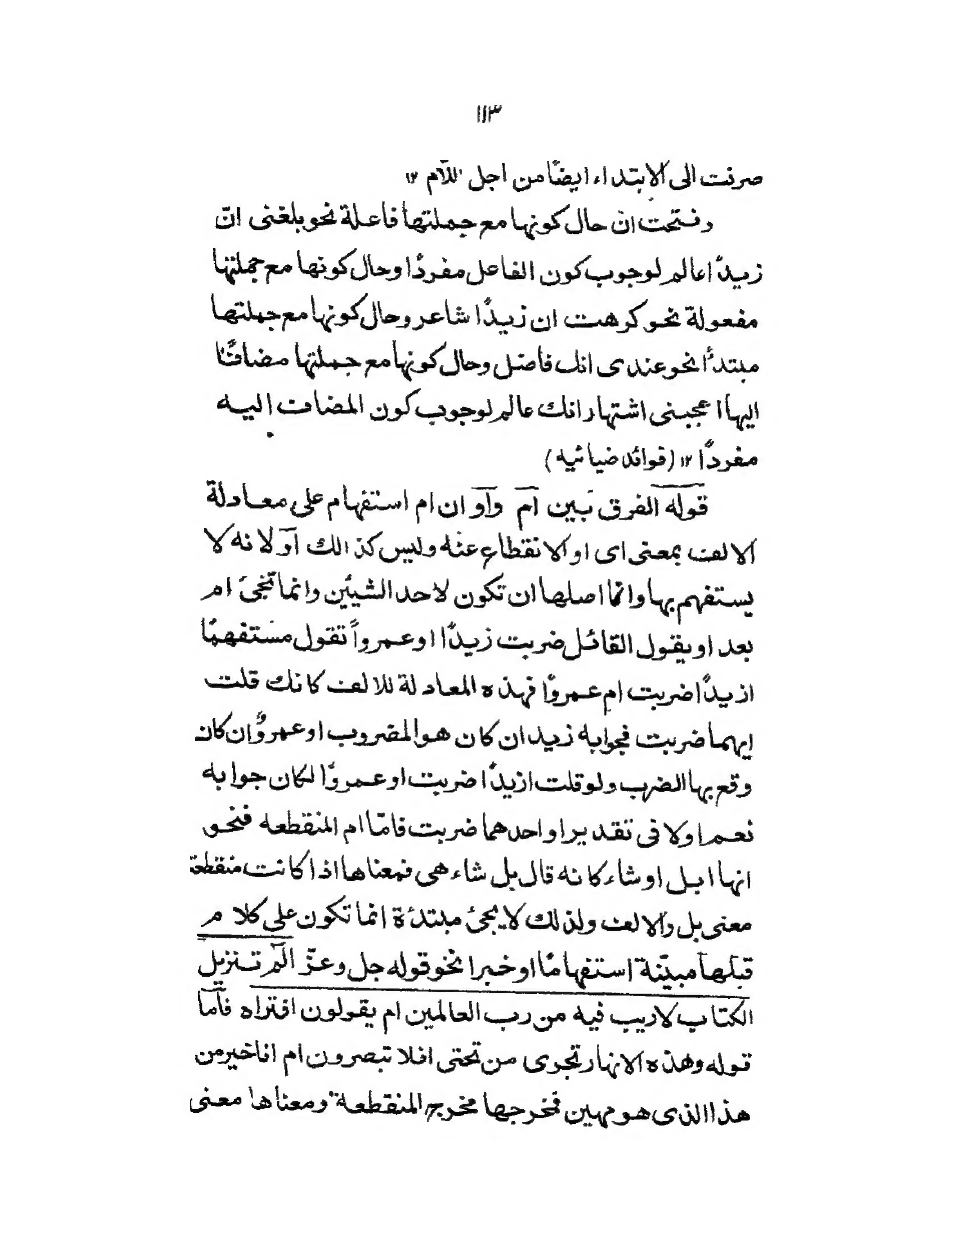 ۱۱۳
صرفت الى الابتداء ايضًا من اجل اللام ۱۲
وفتحت ان حال كونها مع جملتها فاعلة نحو بلغنى انّ
زيدًا عالم لوجوب كون الفاعل مفردًا وحال كونها مع جملتها
مفعولة نحو كرهت ان زيدًا شاعر وحال كونها مع جملتها
مبتدأً نحو عندى انك فاضل وحال كونها مع جملتها مضافًا
اليها اعجبنى اشتهار انك عالم لوجوب كون المضاف اليه
مفردًا ۱۲ (فوائد ضيائيه)
قوله الفرق بين ام وآو ان ام استفهام على معادلة
الالف بمعنى اى او الانقطاع عنه وليس كذالك آو لانه لا
يستفهم بها وانما اصلها ان تكون لاحد الشيئين وانما تجئ ام
بعد او يقول القائل ضربت زيدًا او عمرواً تقول مستفهمًا
ازيدًا ضربت ام عمروًا فهذه المعادلة للالف كانك قلت
ايهما ضربت فجوابه زيد ان كان هو المضروب او عمروٌ ان كان
وقع بها الضرب ولو قلت ازيدًا ضربت او عمروًا لكان جوابه
نعم او لا فى تقدير او احدهما ضربت فامّا ام المنقطعه فنحو
انها ابل او شاء كانه قال بل شاء هى فمعناها اذا كانت منقطعة
معنى بل والالف ولذلك لا يجئ مبتدئة انما تكون على كلام
قبلها مبيّنة استفهامًا او خبرا نحو قوله جل وعزّ الٓمٓ تنزيل
الكتاب لاريب فيه من رب العالمين ام يقولون افتراه فآما
قوله وهذه الانهار تجرى من تحتى افلا تبصرون ام انا خير من
هذا الذى هو مهين فمخرجها مخرج المنقطعة ومعناها معنى